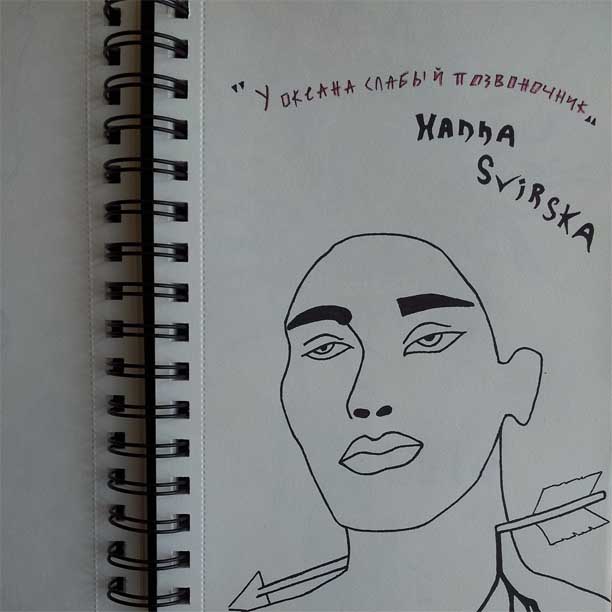 "У океана слабый позвоночник"
Hanna
Svirska